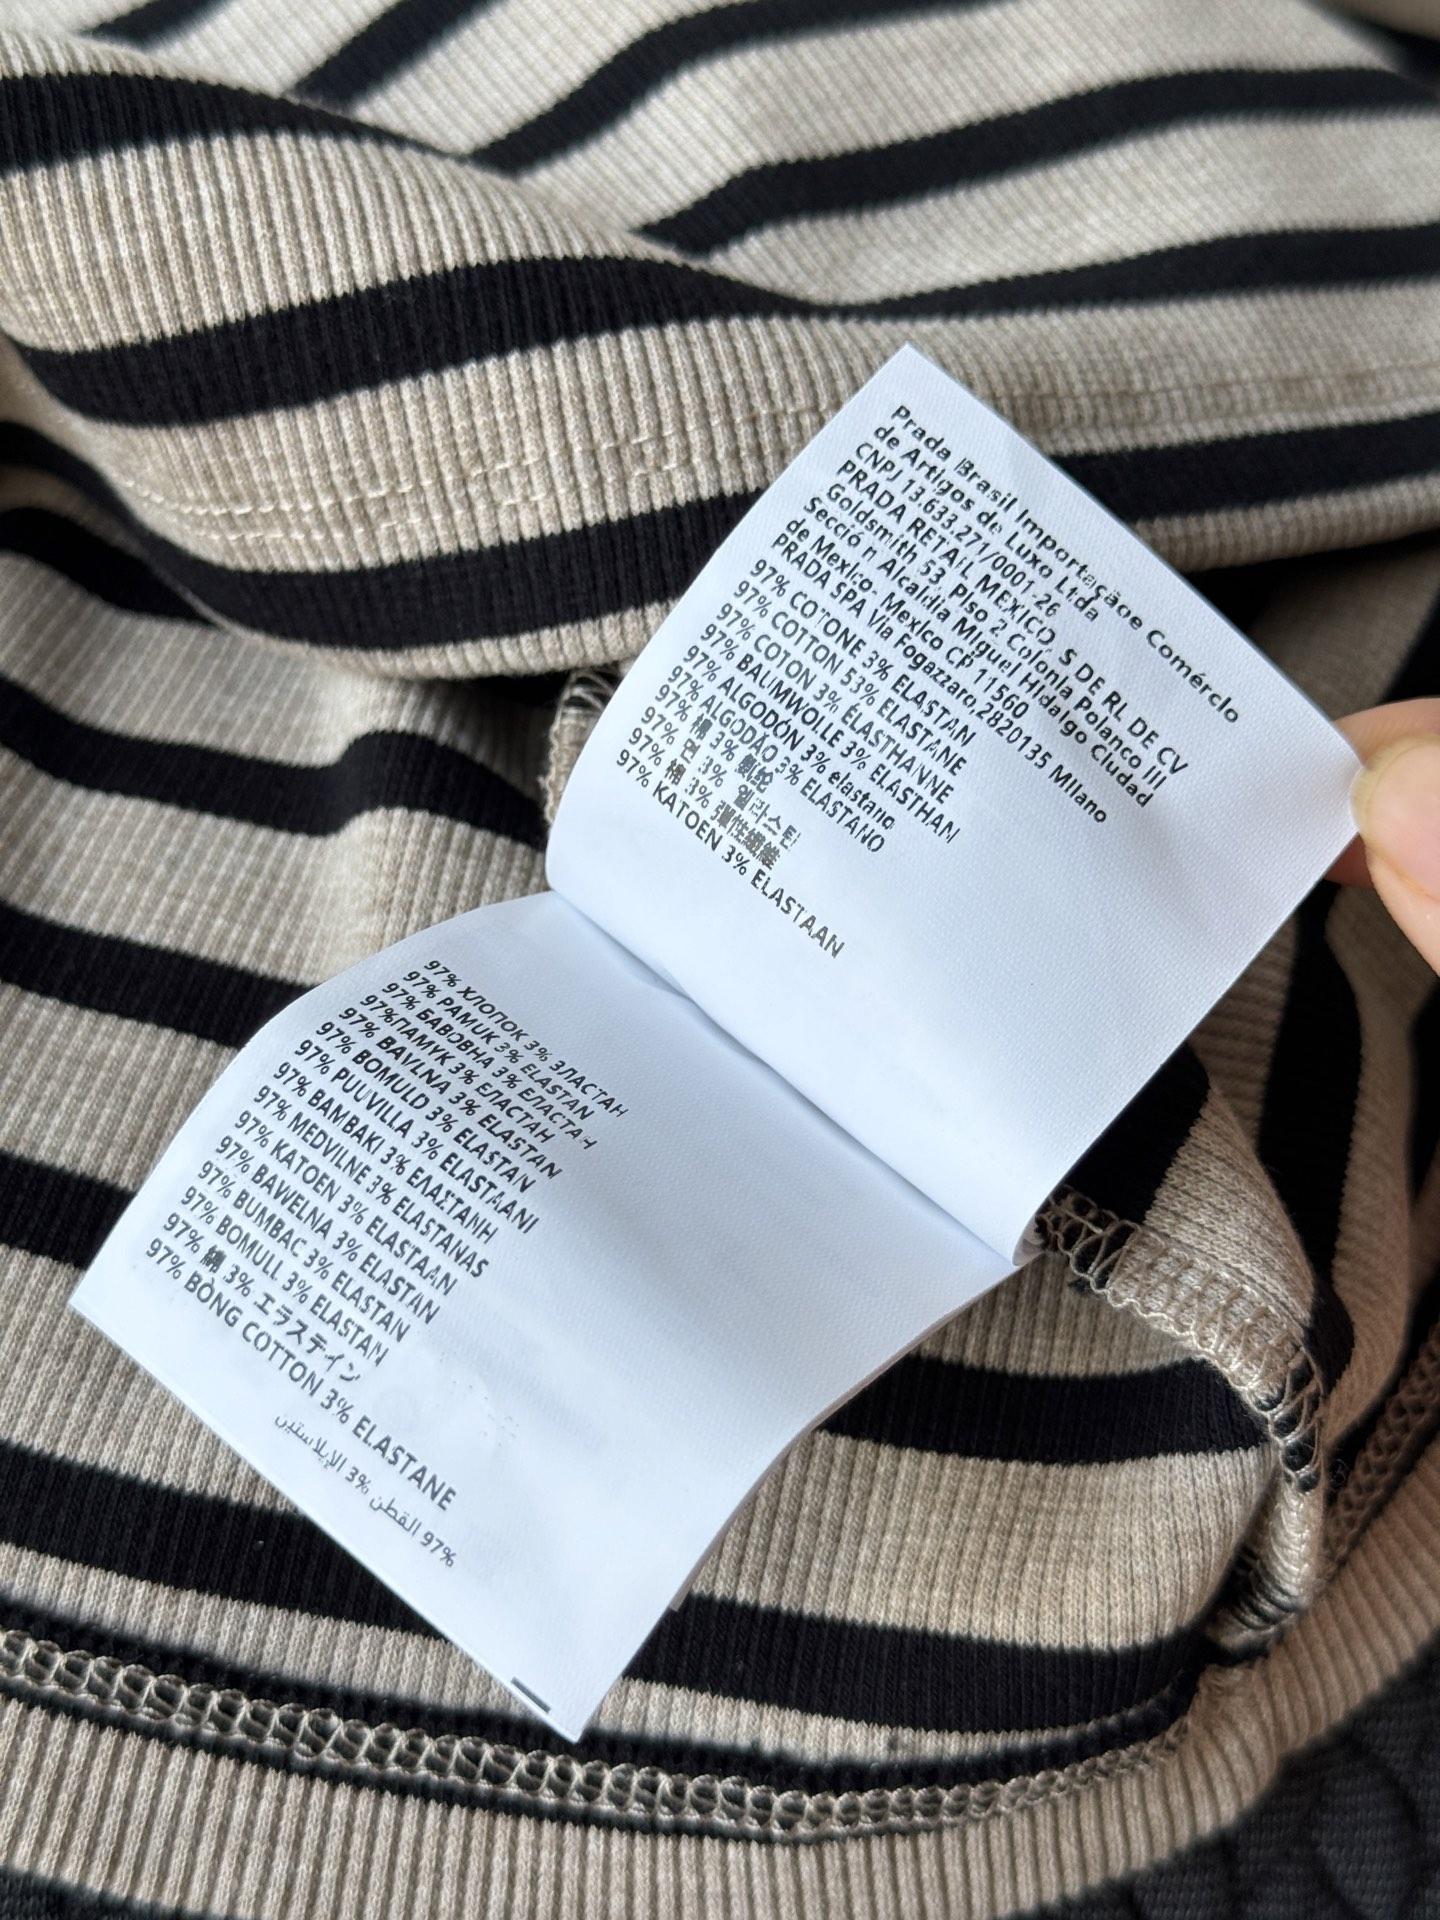 Prada Brasil Importaçãoe Comérclo
de Artigos de Luxo Ltda
CNPJ 13.633.271/0001-26
PRADA RETAIL MEXICO, S DE RL DE CV
Goldsmith 53, Plso 2 Colonla Polanco III
Secció n Alcaldia Miguel Hidalgo Cludad
de Mexico- Mexico CP 11560
PRADA SPA Via Fogazzaro,2820135 Mllano
97% COTONE 3% ELASTAN
97% COTTON 53% ELASTANE
97% COTON 3% ÉLASTHANNE
97% BAUMWOLLE 3% ELASTHAN
97% ALGODÓN 3% elastano
97% ALGODÃO 3% ELASTANO
97% 棉 3% 氨纶
97% 면 3% 엘라스틴
97% 棉 3% 彈性纖維
97% KATOEN 3% ELASTAAN
97% ХЛОПОК 3% ЭЛАСТАН
97% PAMUK 3% ELASTAN
97% БАВОВНА 3% ЕЛАСТАН
97%ПАМУК 3% ЕЛАСТАН
97% BAVLNA 3% ELASTAN
97% BOMULD 3% ELASTAN
97% PUUVILLA 3% ELASTAANI
97% BAMBAKI 3% ΕΛΑΣΤΑΝΗ
97% MEDVILNE 3% ELASTANAS
97% KATOEN 3% ELASTAAN
97% BAWEŁNA 3% ELASTAN
97% BUMBAC 3% ELASTAN
97% BOMULL 3% ELASTAN
97% 綿 3% エラスティン
97% BÒNG COTTON 3% ELASTANE
97% القطن 3% الإيلاستين